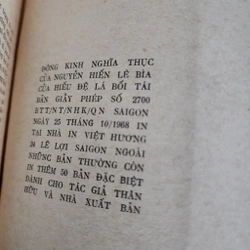 ĐÔNG KINH NGHĨA THỤC
CỦA NGUYỄN HIẾN LÊ BÌA
CỦA HIẾU ĐỆ LÁ BỐI TÁI
BẢN GIẤY PHÉP SỐ 2700
BTT/NT/NHK/QN SAIGON
NGÀY 25 THÁNG 10/1968 IN
TẠI NHÀ IN VIỆT HƯƠNG
34 LÊ LỢI SAIGON NGOÀI
NHỮNG BẢN THƯỜNG CÒN
IN THÊM 50 BẢN ĐẶC BIỆT
DÀNH CHO TÁC GIẢ THÂN
HỮU VÀ NHÀ XUẤT BẢN